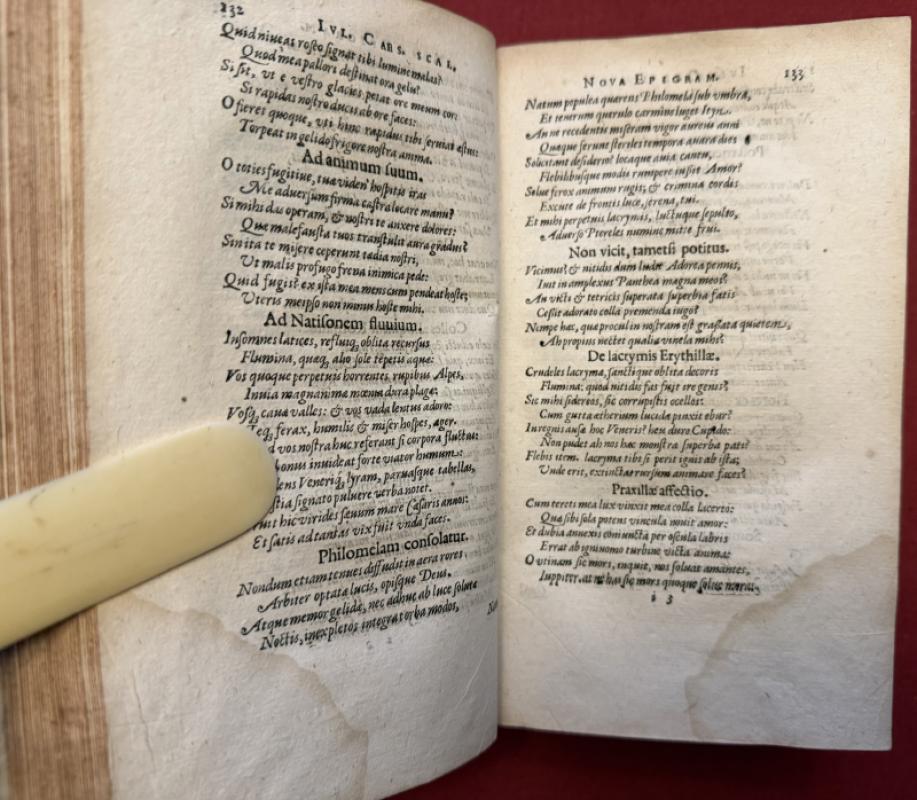 132
IVL. CAES. SCAL.
Quid niueas roseo signat tibi lumine malas?
Quod mea pallori destinat ora gelu?
Si sit, vt e vestro glacies petat ore meum cor:
Si rapidas nostro ducis ab ore faces:
O fieret quoque, vti hinc rapidus tibi seruiat æstus:
Torpeat in gelido frigore nostra anima.
Ad animum suum.
O toties fugitiue, tuæ viden' hospitis iras
Me aduersum firma castra locare manu?
Si mihi das operam, & nostri te anxere dolores:
Quæ malefausta tuos transtulit aura gradus?
Sin ita te misere ceperunt tædia nostri,
Vt malis profugo frena inimica pede:
Quid fugis? ex ista mea mens cum pendeat hoste;
Vteris meipso non minus hoste mihi.
Ad Natisonem fluuium.
Insomnes latices, refluiq́; oblita recursus
Flumina, quæq; alio sole tepetis aquæ:
Vos quoque perpetuis horrentes rupibus Alpes,
Inuia magnanimæ mœnia dura plagæ:
Vosq́;, cauæ valles: & vos vada lentus adoro:
Teq́;, ferax, humilis & miser hospes, ager.
vos nostra huc referant si corpora fluctus:
bonus inuideat forte viator humum:
Veneriq́; lyram, paruasque tabellas,
signato puluere verba notet.
hic virides sæuum mare Cæsaris annos:
Et satis ad tantas vix fuit vnda faces.
Philomelam consolatur.
Nondum etiam tenues diffudit in aera rores
Arbiter optatæ lucis, opisque Deus.
Atque memor gelidæ, nec adhuc ab luce solutæ
Noctis, inexpletos integrat orba modos,
NOVA EPIGRAM. 133
Natum populea quærens Philomela sub vmbra,
Et tenerum querulo carmine luget Ityn.
An ne recedentis miseram vigor aureus anni
Quæque ferunt steriles tempora auara dies
Solicitant desiderio? locaque auia cantu,
Flebilibusque modis rumpere iussit Amor?
Solue ferox animum rugis; & crimina cordis
Excute de frontis luce, serena, tui.
Et mihi perpetuis lacrymis, luctuque sepulto,
Aduerso Ptereles numine mitte frui.
Non vicit, tametsi potitus.
Vicimus? & nitidis dum ludit Adorea pennis,
Iuit in amplexus Panthea magna meos?
An victa & tetricis superata superbia fatis
Cessit adorato colla premenda iugo?
Nempe hæc, quæ procul in nostram est grassata quietem,
Ah propius nectet qualia vincla mihi?
De lacrymis Erythillæ.
Crudeles lacrymæ, sanctique oblita decoris
Flumina: quod nitidis fas fuit ire genis?
Sic mihi sidereos, sic corrupistis ocellos:
Cum gutta ætherium lucida pinxit ebur?
In regnis ausæ hoc Veneris? heu dure Cupido:
Non pudet ah nos hæc monstra superba pati?
Flebis item. lacryma tibi si perit ignis ab ista;
Vnde erit, extinctæ rursum animare faces?
Praxillæ affectio.
Cum teretes mea lux vinxit mea colla lacertos:
Quæ sibi sola potens vincula nouit amor:
Et dubia annexis coniuncta per oscula labris
Errat ab igniuomo turbine victa anima:
O vtinam sic mors, inquit, nos soluat amantes,
Iuppiter. at ne has sic mors quoque soluet moras.
i 3